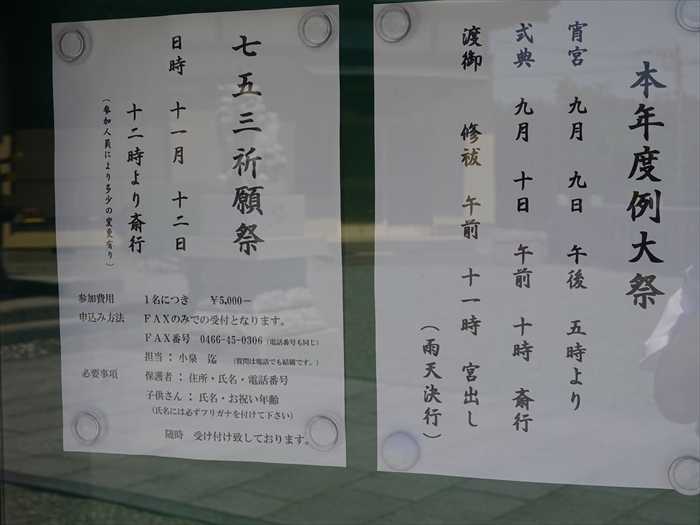 本年度例大祭
宵宮 九月 九日 午後 五時より
式典 九月 十日 午前 十時 斎行
渡御 修祓 午前 十一時 宮出し
(雨天決行)
七五三祈願祭
日時 十一月 十二日
十二時より斎行
(参加人員により多少の変更有り)
参加費用 1名につき ¥5,000−
申込み方法 FAXのみでの受付となります。
FAX番号 0466-45-0306 (電話番号も同じ)
担当:小泉 迄 (質問は電話でも結構です。)
必要事項 保護者:住所・氏名・電話番号
子供さん:氏名・お祝い年齢
(氏名には必ずフリガナを付けて下さい)
随時 受け付け致しております。